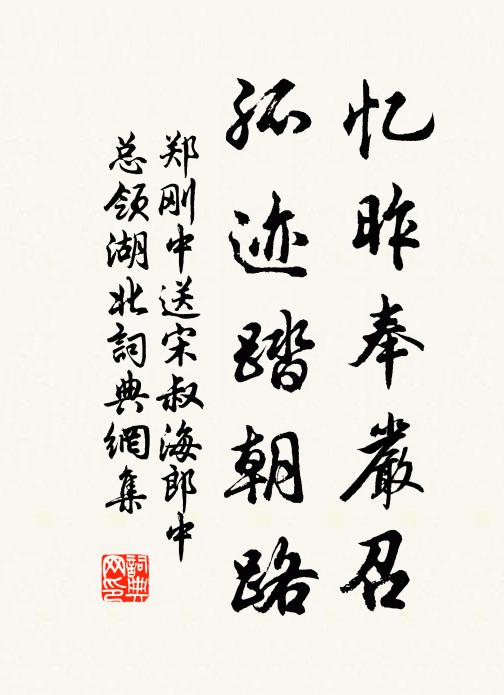 忆昨奉嚴召
孤迹踏朝路
郑刚中送宋叔海郎中
总领湖北詞典網集
詞典网印